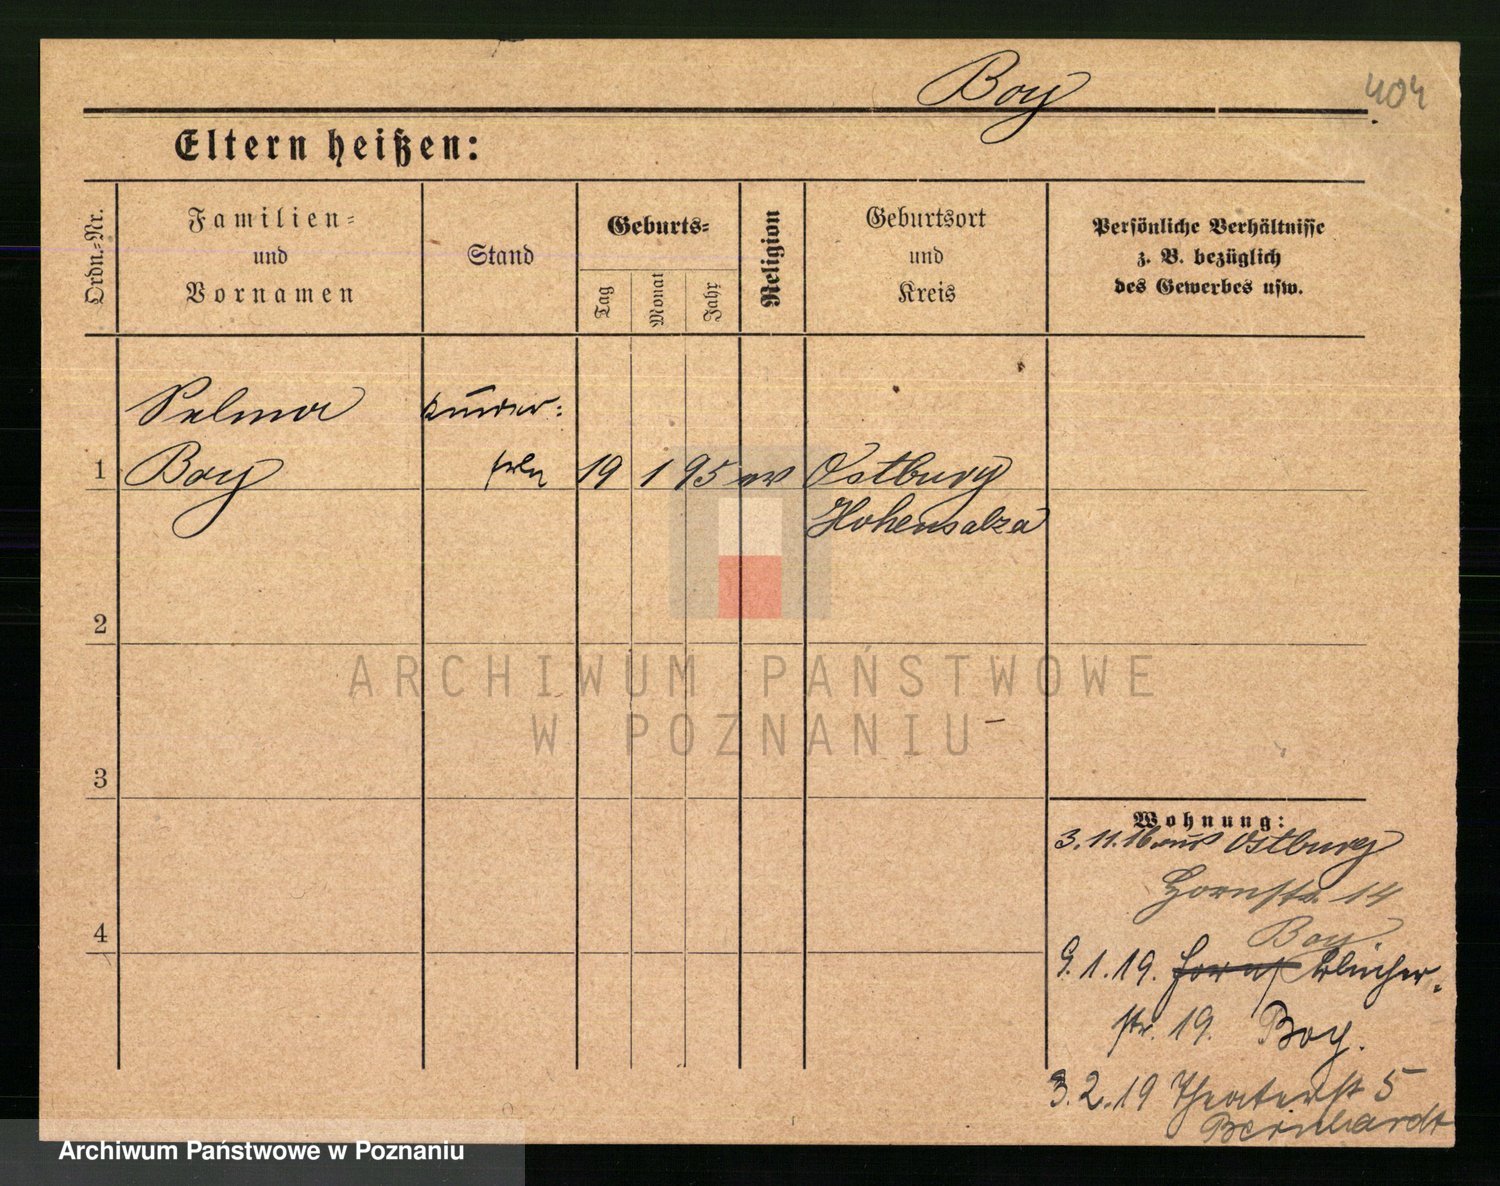 Boy
404
Eltern heißen:
Ordn.-Nr.
Familien-
und
Vornamen
Stand
Geburts-
Tag
Monat
Jahr
Religion
Geburtsort
und
Kreis
Persönliche Verhältnisse
z. B. bezüglich
des Gewerbes usw.
Selma
Kinder-
frln
1
Boy
19 1 95 ev
Ostburg
Hohensalza
2
3
4
ARCHIWUM PAŃSTWOWE
W POZNANIU
Wohnung:
3.11.16 aus Ostburg
Hornstr. 14
Boy
9.1.19. Hornst Blücher-
str. 19. Boy.
3.2.19 Theaterst 5
Bernhardt
Archiwum Państwowe w Poznaniu